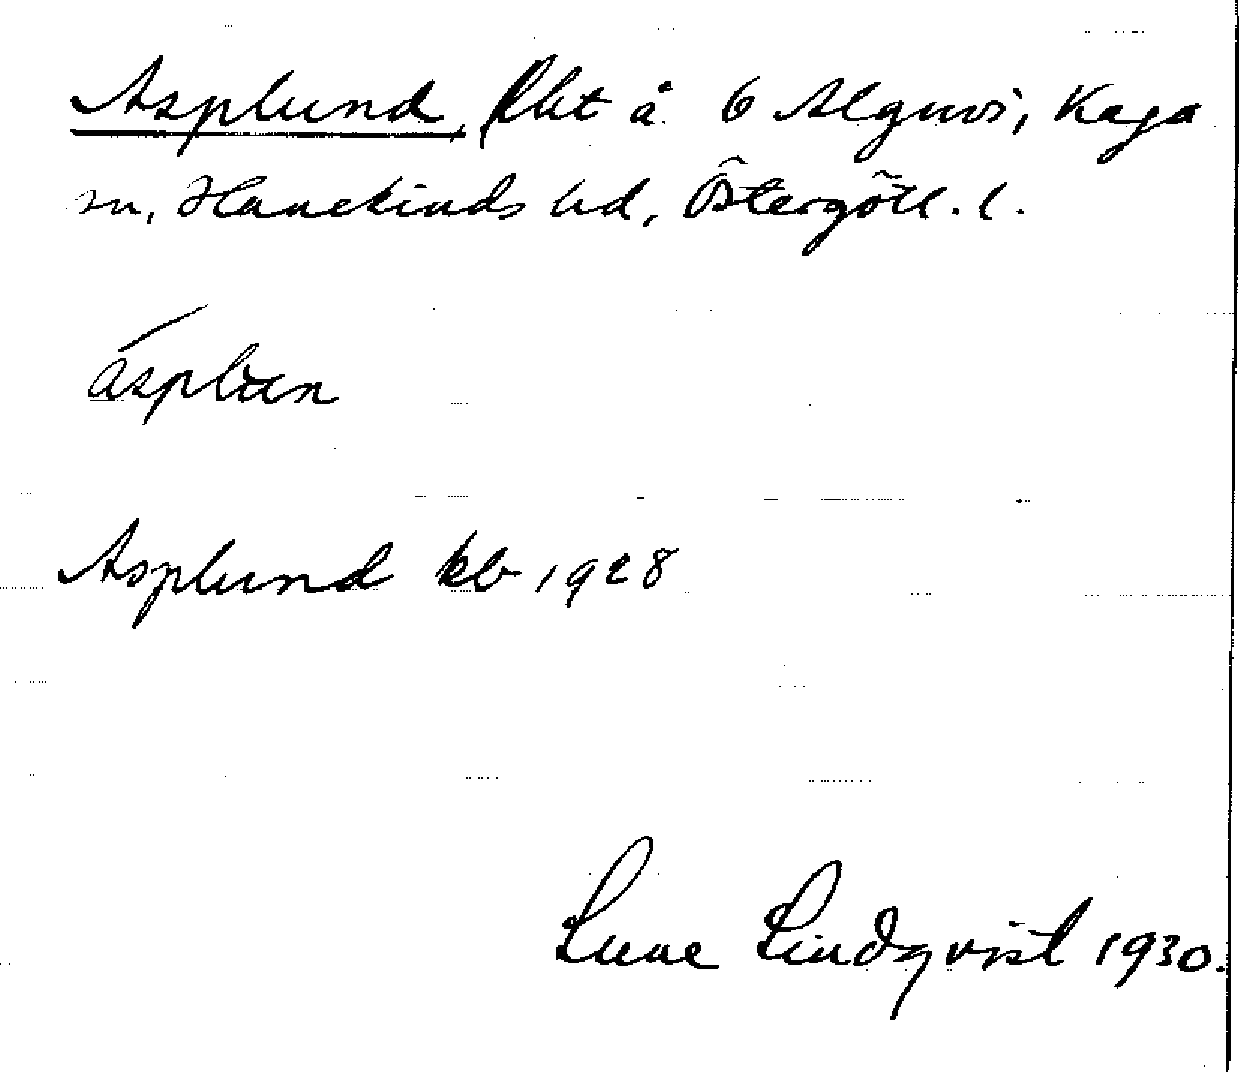 Asplund, lht å 6 Algusvi, Kaga
sn, Hanekinds hd, Östergötl. l.
asplun
Asplund kb 1928
Sune Lindqvist 1930.